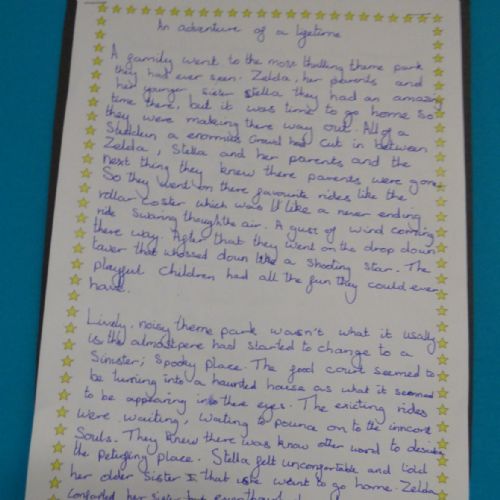 An adventure of a lifetime
A family went to the most thrilling theme park
they had ever seen. Zelda, her parents and
her younger sister Stella they had an amazing
time there, but it was time to go home so
they were making there way out. All of a
Suddden a enormous crowd had cut in between
Zelda, Stella and her parents and the
next thing they knew there parents were gone.
So they went on there favourite rides like the
rollar coster which was like a never ending
ride Swaring though the air. A gust of wind coming
there way. After that they went on the drop down
tawer that whossed down like a shooting star. The
playful children had all the fun they could ever
have.
Lively, noisy theme park wasn't what it usally
is the almostpere had started to change to a
Sinister, Spooky place. The food court seemed to
be turning into a haunted house as what it seemed
to be appearing into there eyes. The exiting rides
were waiting, waiting to pounce on to the inncont
Souls. They knew there was know other word to
the place. Stella felt uncomfortable and told
her older Sister that she want to go home. Zelda
her sister but